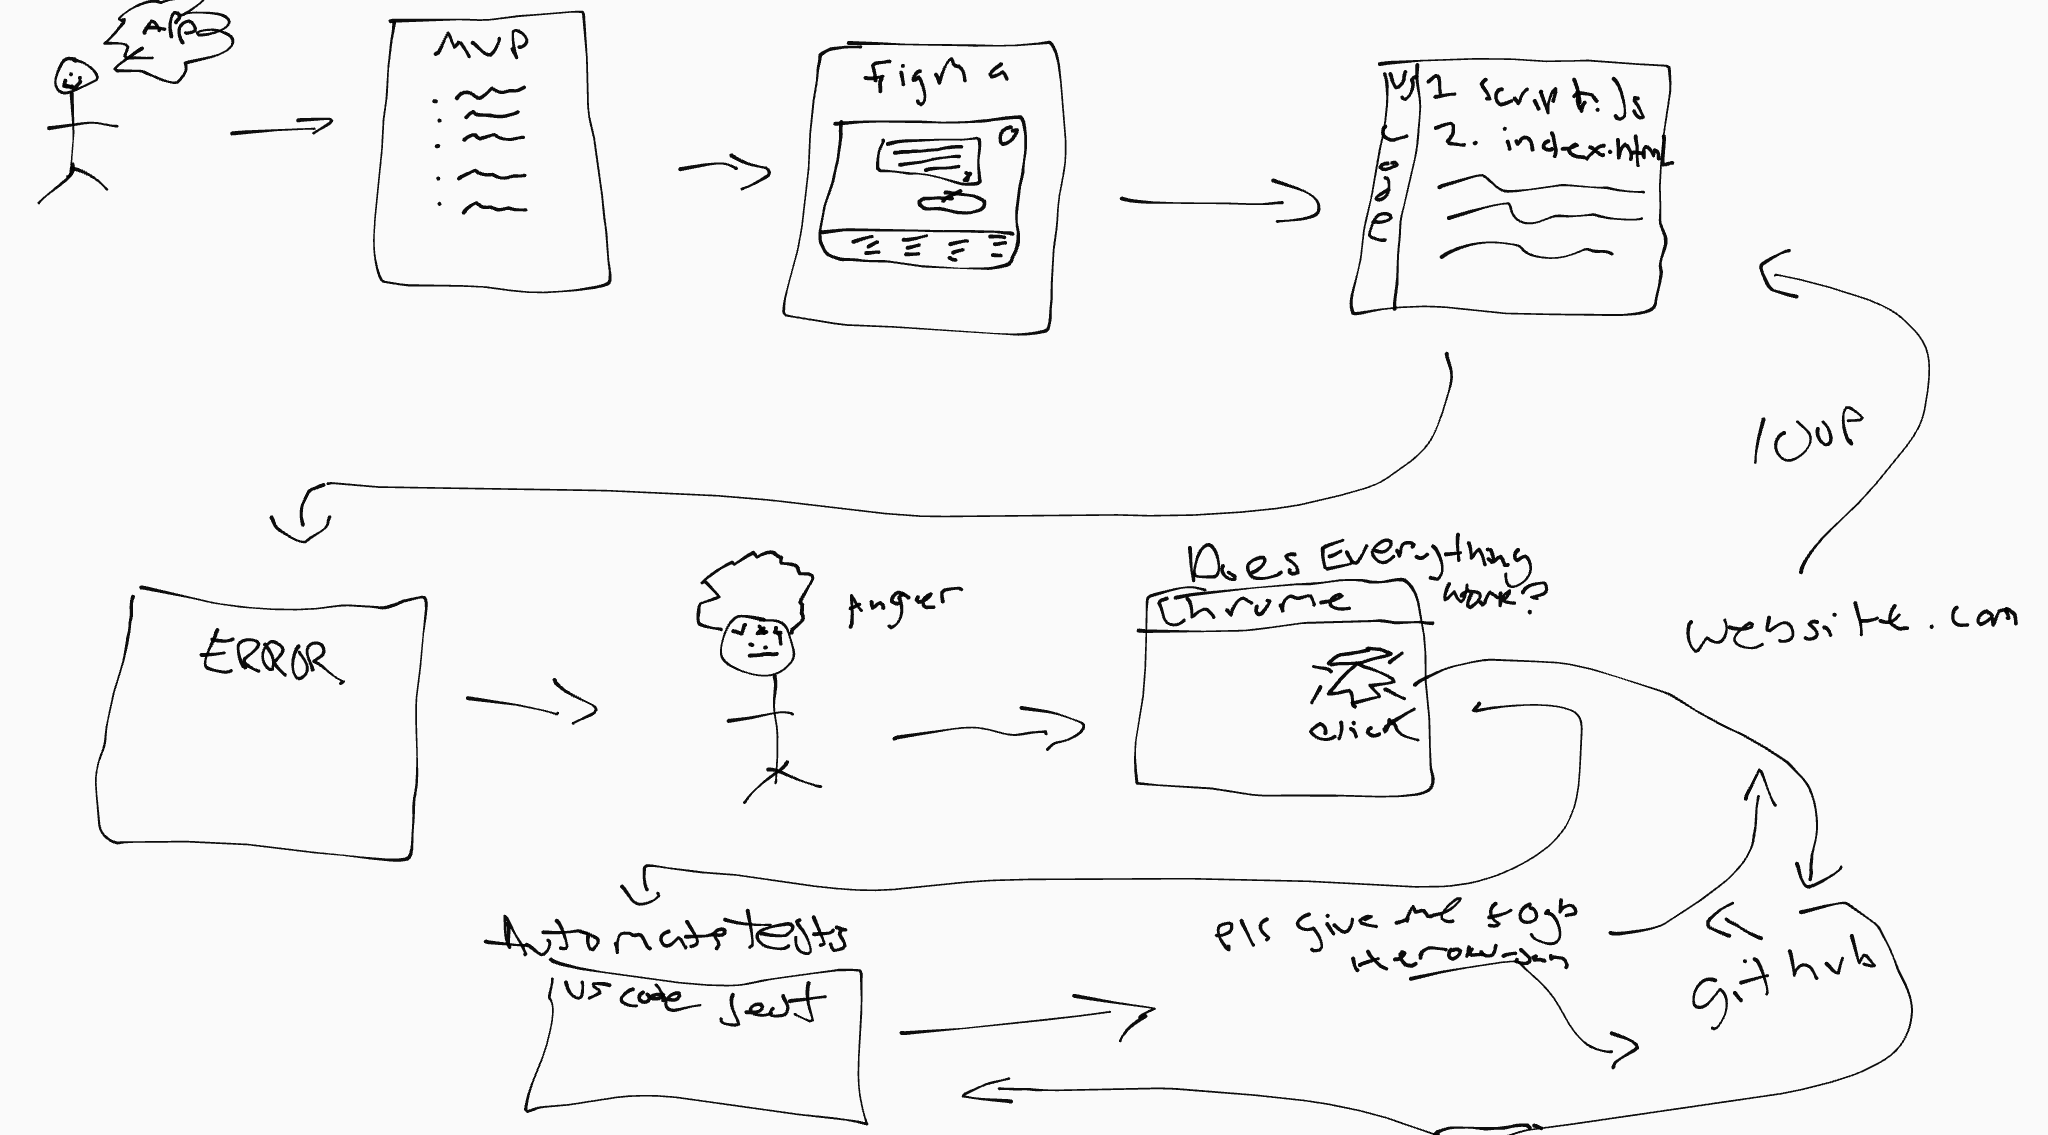 App
MVP
Figma
VS Code
1 script.js
2. index.html
loop
Does Everything
work?
Chrome
click
website.com
ERROR
Anger
Automate tests
VS code jest
pls give me 50gb
Heroku
github